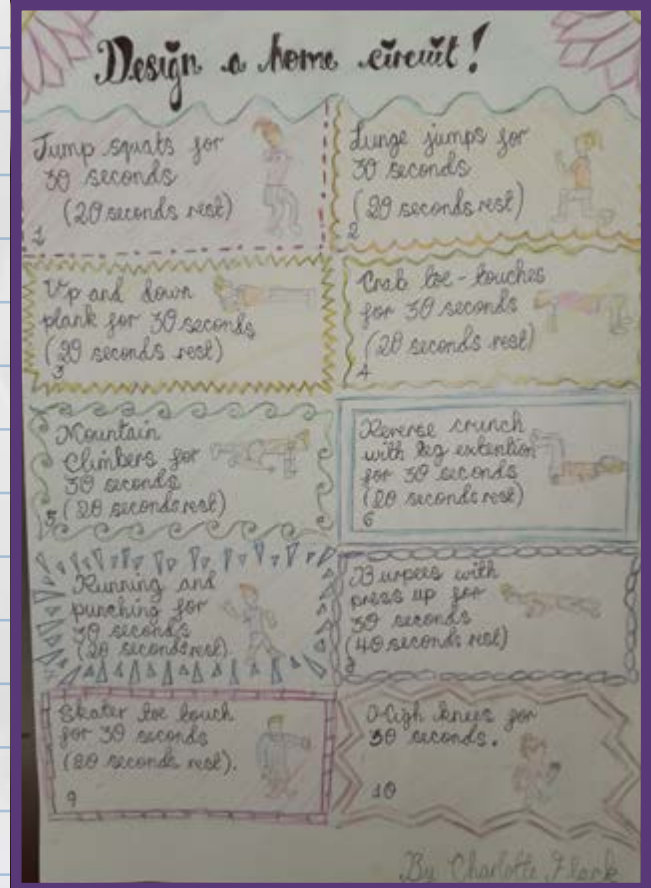 Design a home circuit!
Jump squats for
30 seconds
(20 seconds rest)
1
Lunge jumps for
30 seconds
(20 seconds rest)
2
Up and down
plank for 30 seconds
(20 seconds rest)
3
Crab toe-touches
for 30 seconds
(20 seconds rest)
4
Mountain
Climbers for
30 seconds
(20 seconds rest)
5
Reverse crunch
with leg extention
for 30 seconds
(20 seconds rest)
6
Running and
punching for
30 seconds
(20 seconds rest).
Burpees with
press up for
30 seconds
(40 seconds rest)
8
Skater toe touch
for 30 seconds
(20 seconds rest).
9
High knees for
30 seconds.
10
By Charlotte Flack